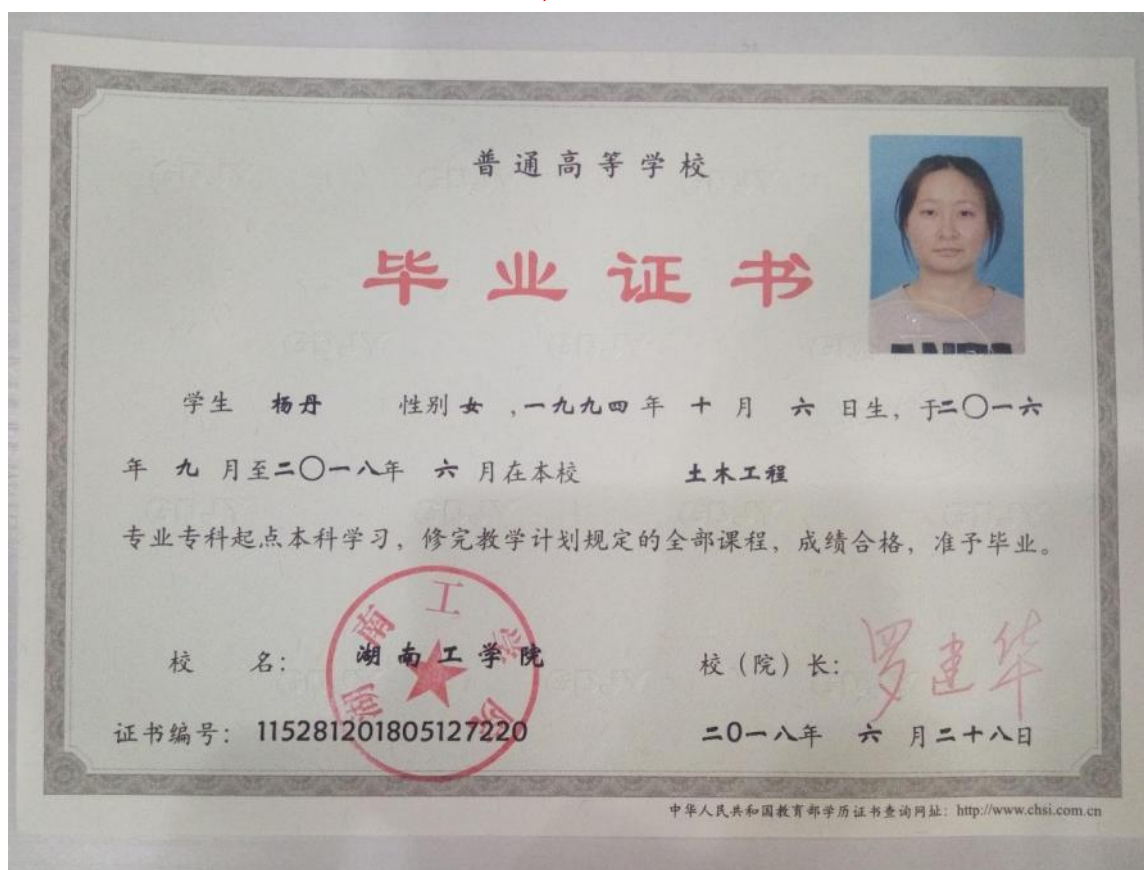 普通高等学校
毕业证书
学生 杨丹 性别 女 ,一九九四 年 十 月 六 日生，于二〇一六
年 九 月至二〇一八年 六 月在本校 土木工程
专业专科起点本科学习，修完教学计划规定的全部课程，成绩合格，准予毕业。
湖南工学院
校 名： 湖南工学院 校（院）长： 罗建华
证书编号： 115281201805127220 二0一八年 六 月二十八日
中华人民共和国教育部学历证书查询网址：http://www.chsi.com.cn